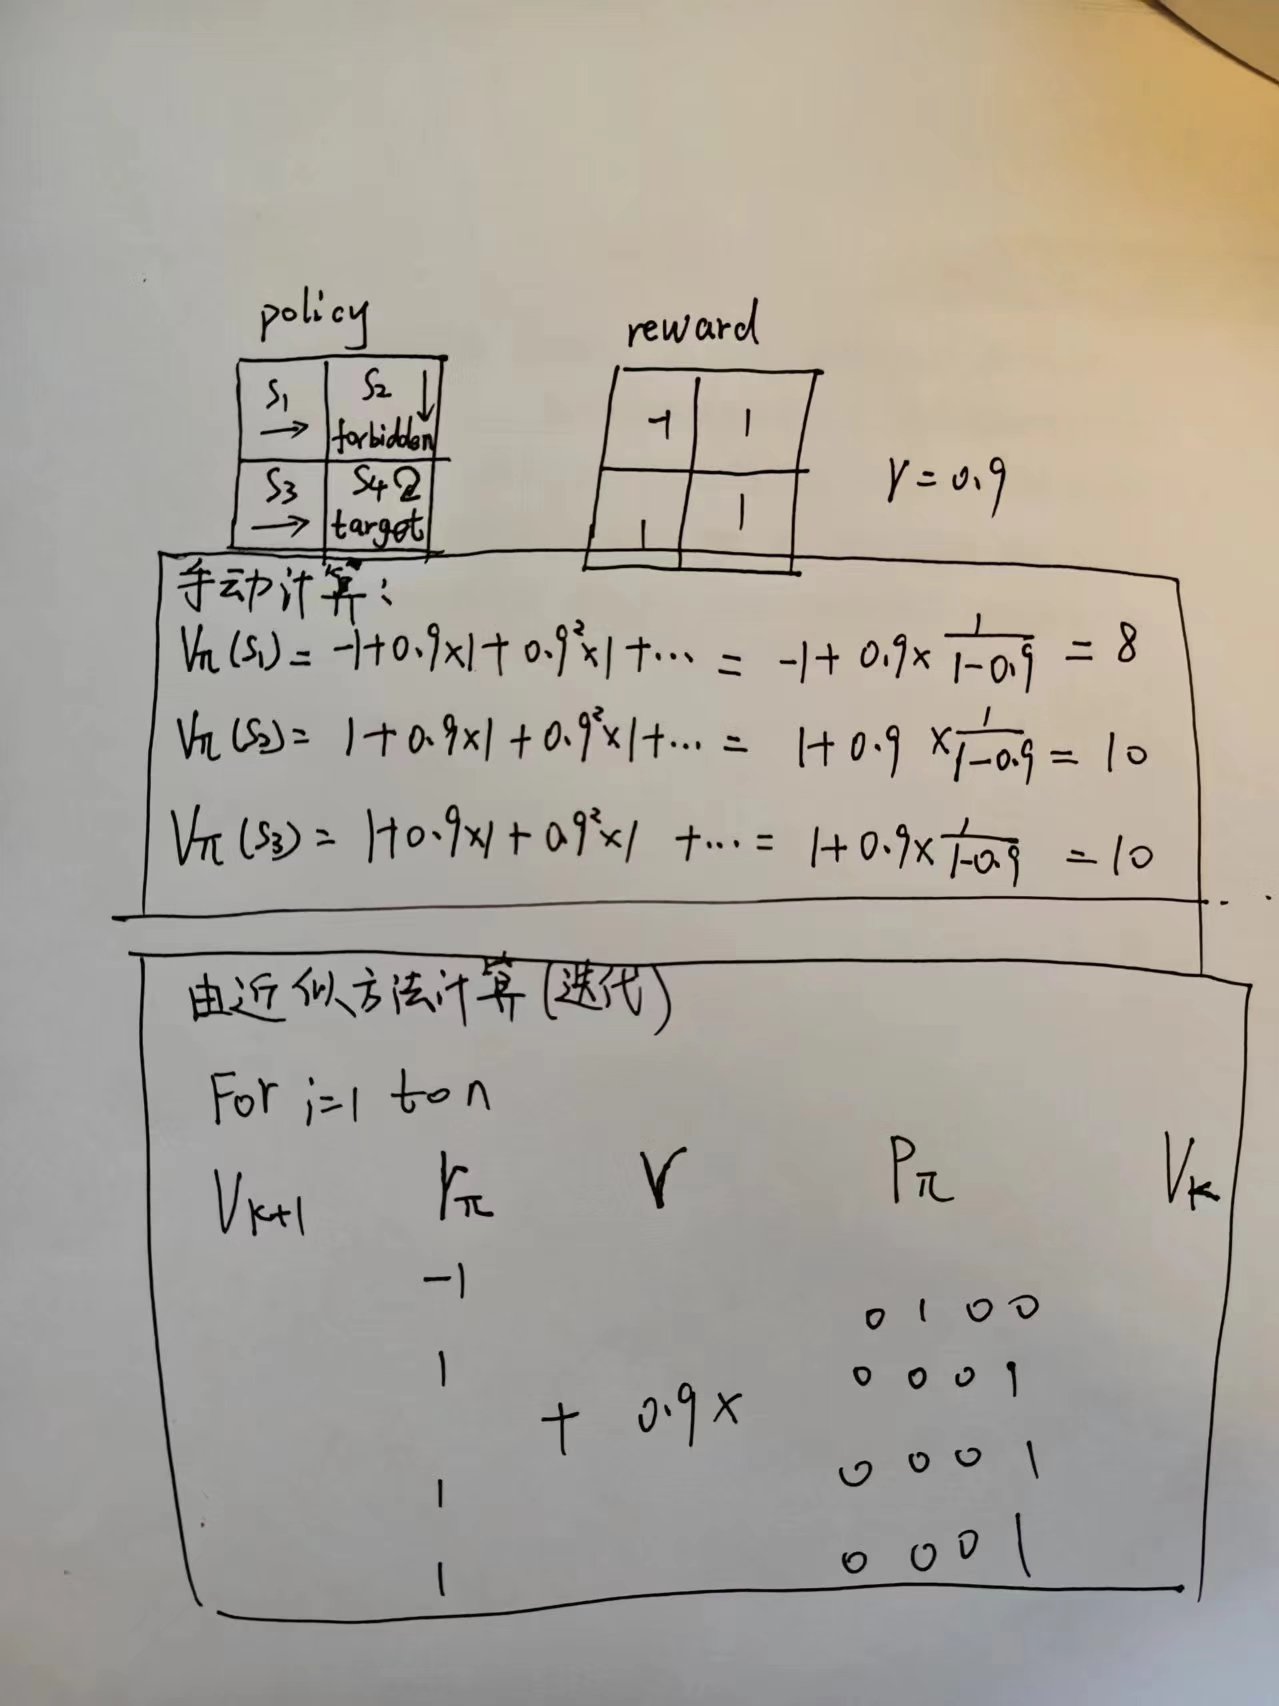 policy
reward
S₁ → S₂ ↓
forbidden
S₃ → S₄
target
-1 1
1 1
γ = 0.9
手动计算:
Vπ(S₁) = -1+0.9×1+0.9²×1+... = -1+0.9×1/(1-0.9) = 8
Vπ(S₂) = 1+0.9×1+0.9²×1+... = 1+0.9×1/(1-0.9) = 10
Vπ(S₃) = 1+0.9×1+0.9²×1+... = 1+0.9×1/(1-0.9) = 10
由近似方法计算(迭代)
For i=1 to n
Vk+1 rπ γ Pπ Vk
-1 0 1 0 0
1 0 0 0 1
+ 0.9×
1 0 0 0 1
1 0 0 0 1